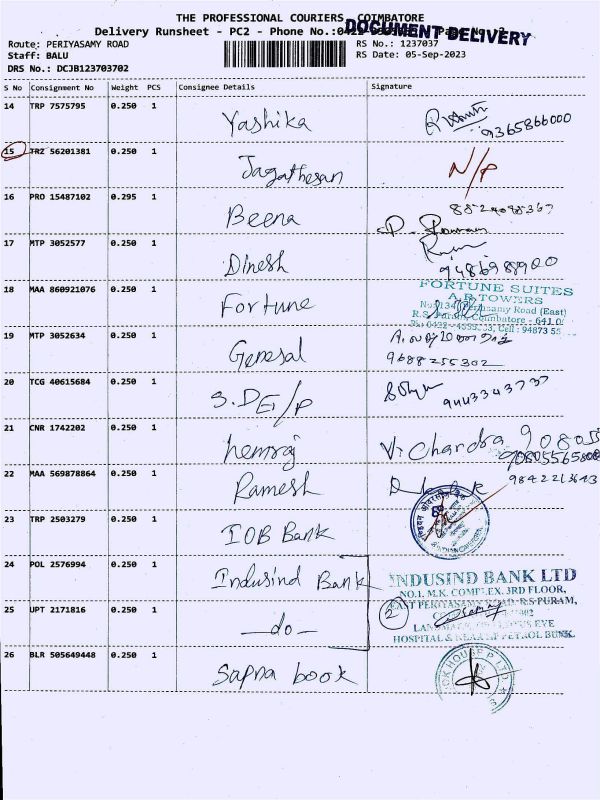 THE PROFESSIONAL COURIERS, COIMBATORE
Delivery Runsheet - PC2 - Phone No.:0422
DOCUMENT DELIVERY
Route: PERIYASAMY ROAD
RS No.: 1237037
Staff: BALU
RS Date: 05-Sep-2023
DRS No.: DCJB123703702
S No Consignment No Weight PCS Consignee Details Signature
14 TRP 7575795 0.250 1 Yashika
9365866000
15 TRZ 56201381 0.250 1 Jagathesan N/P
16 PRO 15487102 0.295 1 Beena
17 MTP 3052577 0.250 1 Dinesh
18 MAA 860921076 0.250 1 Fortune
FORTUNE SUITES
A.R TOWERS
Periyasamy Road (East)
R.S. Puram, Coimbatore - 641 0
19 MTP 3052634 0.250 1 General
9688255302
20 TCG 40615684 0.250 1 S.DEI/P
9443343737
21 CNR 1742202 0.250 1 hemraj V. Chandra
22 MAA 569878864 0.250 1 Ramesh
9842213643
23 TRP 2503279 0.250 1 IOB Bank
24 POL 2576994 0.250 1 Indusind Bank
INDUSIND BANK LTD
NO.1, M.K. COMPLEX, 3RD FLOOR,
EAST PERIYASAMY ROAD, R.S PURAM,
25 UPT 2171816 0.250 1 —do—
2
HOSPITAL & NEAR HP PETROL BUNK.
26 BLR 505649448 0.250 1 Sapna book